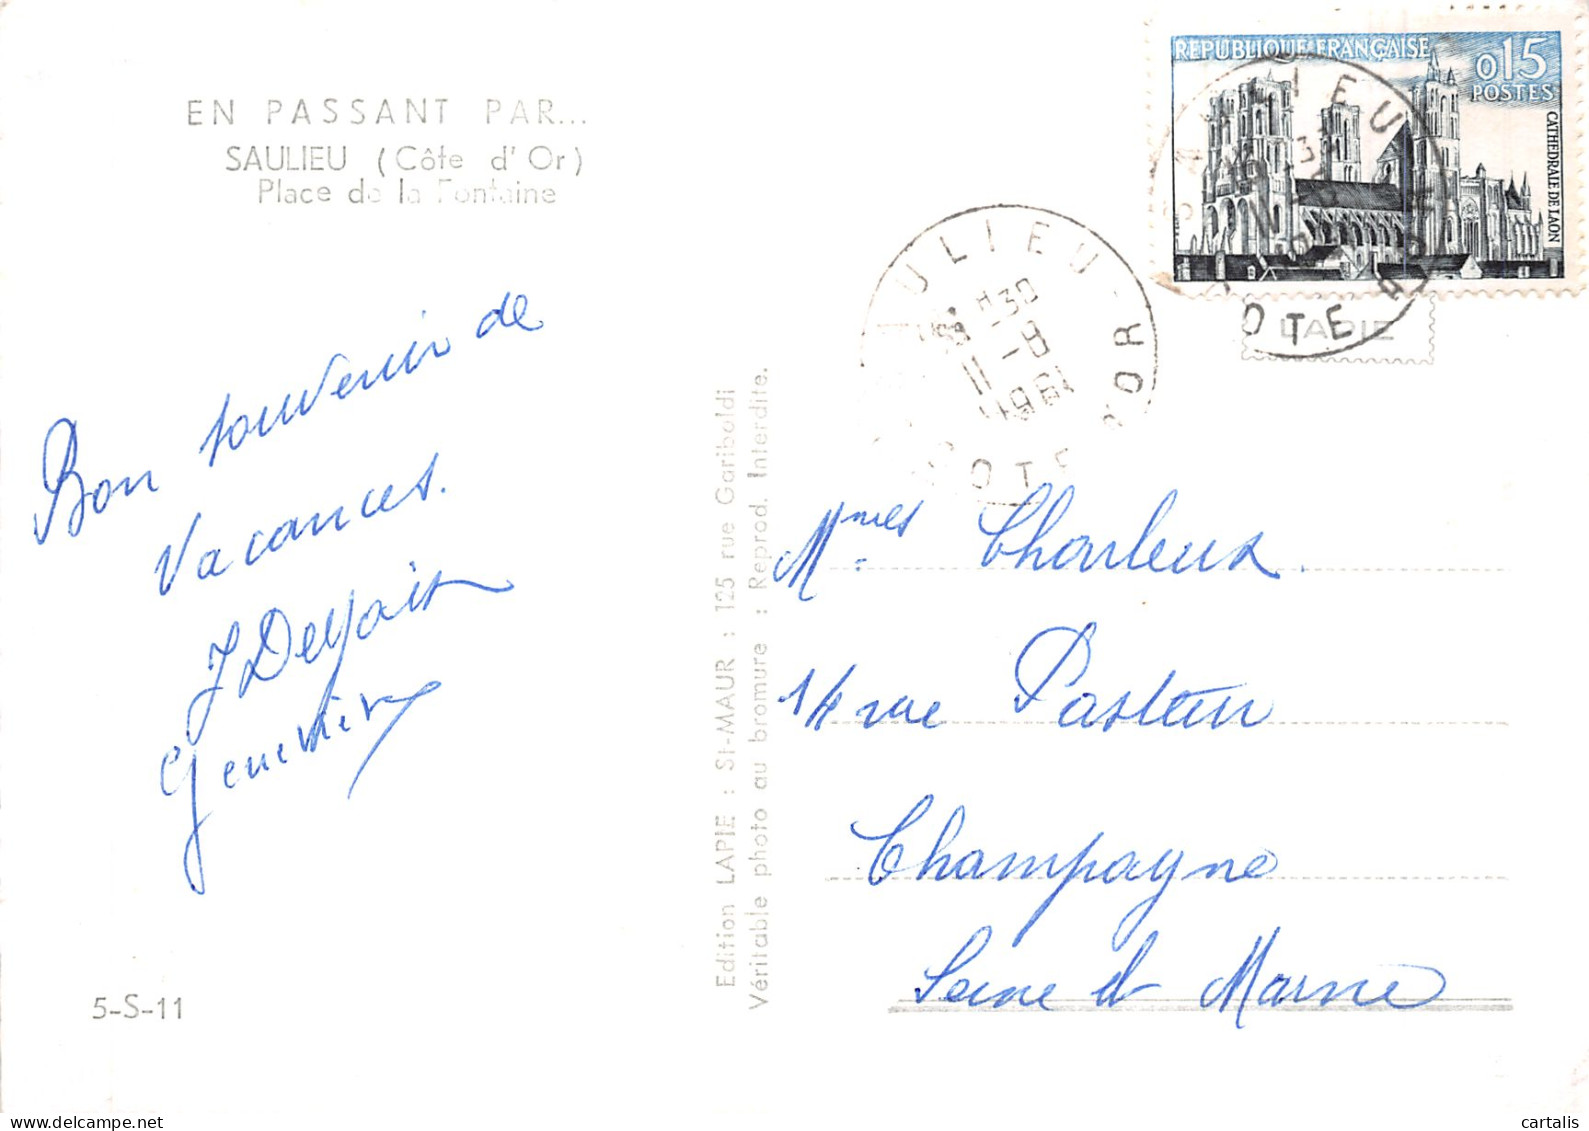 EN PASSANT PAR...
SAULIEU (Côte d'Or)
Place de la Fontaine
Bon souvenir de
Vacances.
Geneviève
5-S-11
Edition LAPIE : St-MAUR : 125 rue Gariboldi
Véritable photo au bromure : Reprod. Interdite.
REPUBLIQUE FRANÇAISE
0,15
POSTES
CATHEDRALE DE LAON
LAPIE
SAULIEU
COTE D'OR
11-8
1961
Mmes Charleux.
14 rue Pasteur
Champagne
Seine et Marne
cartalis
Delcampe.net